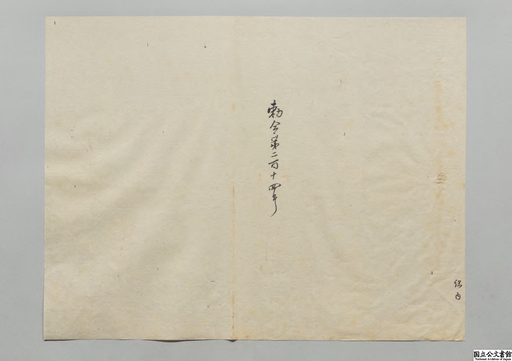 勅令第二百十四号
国立公文書館
National Archives of Japan